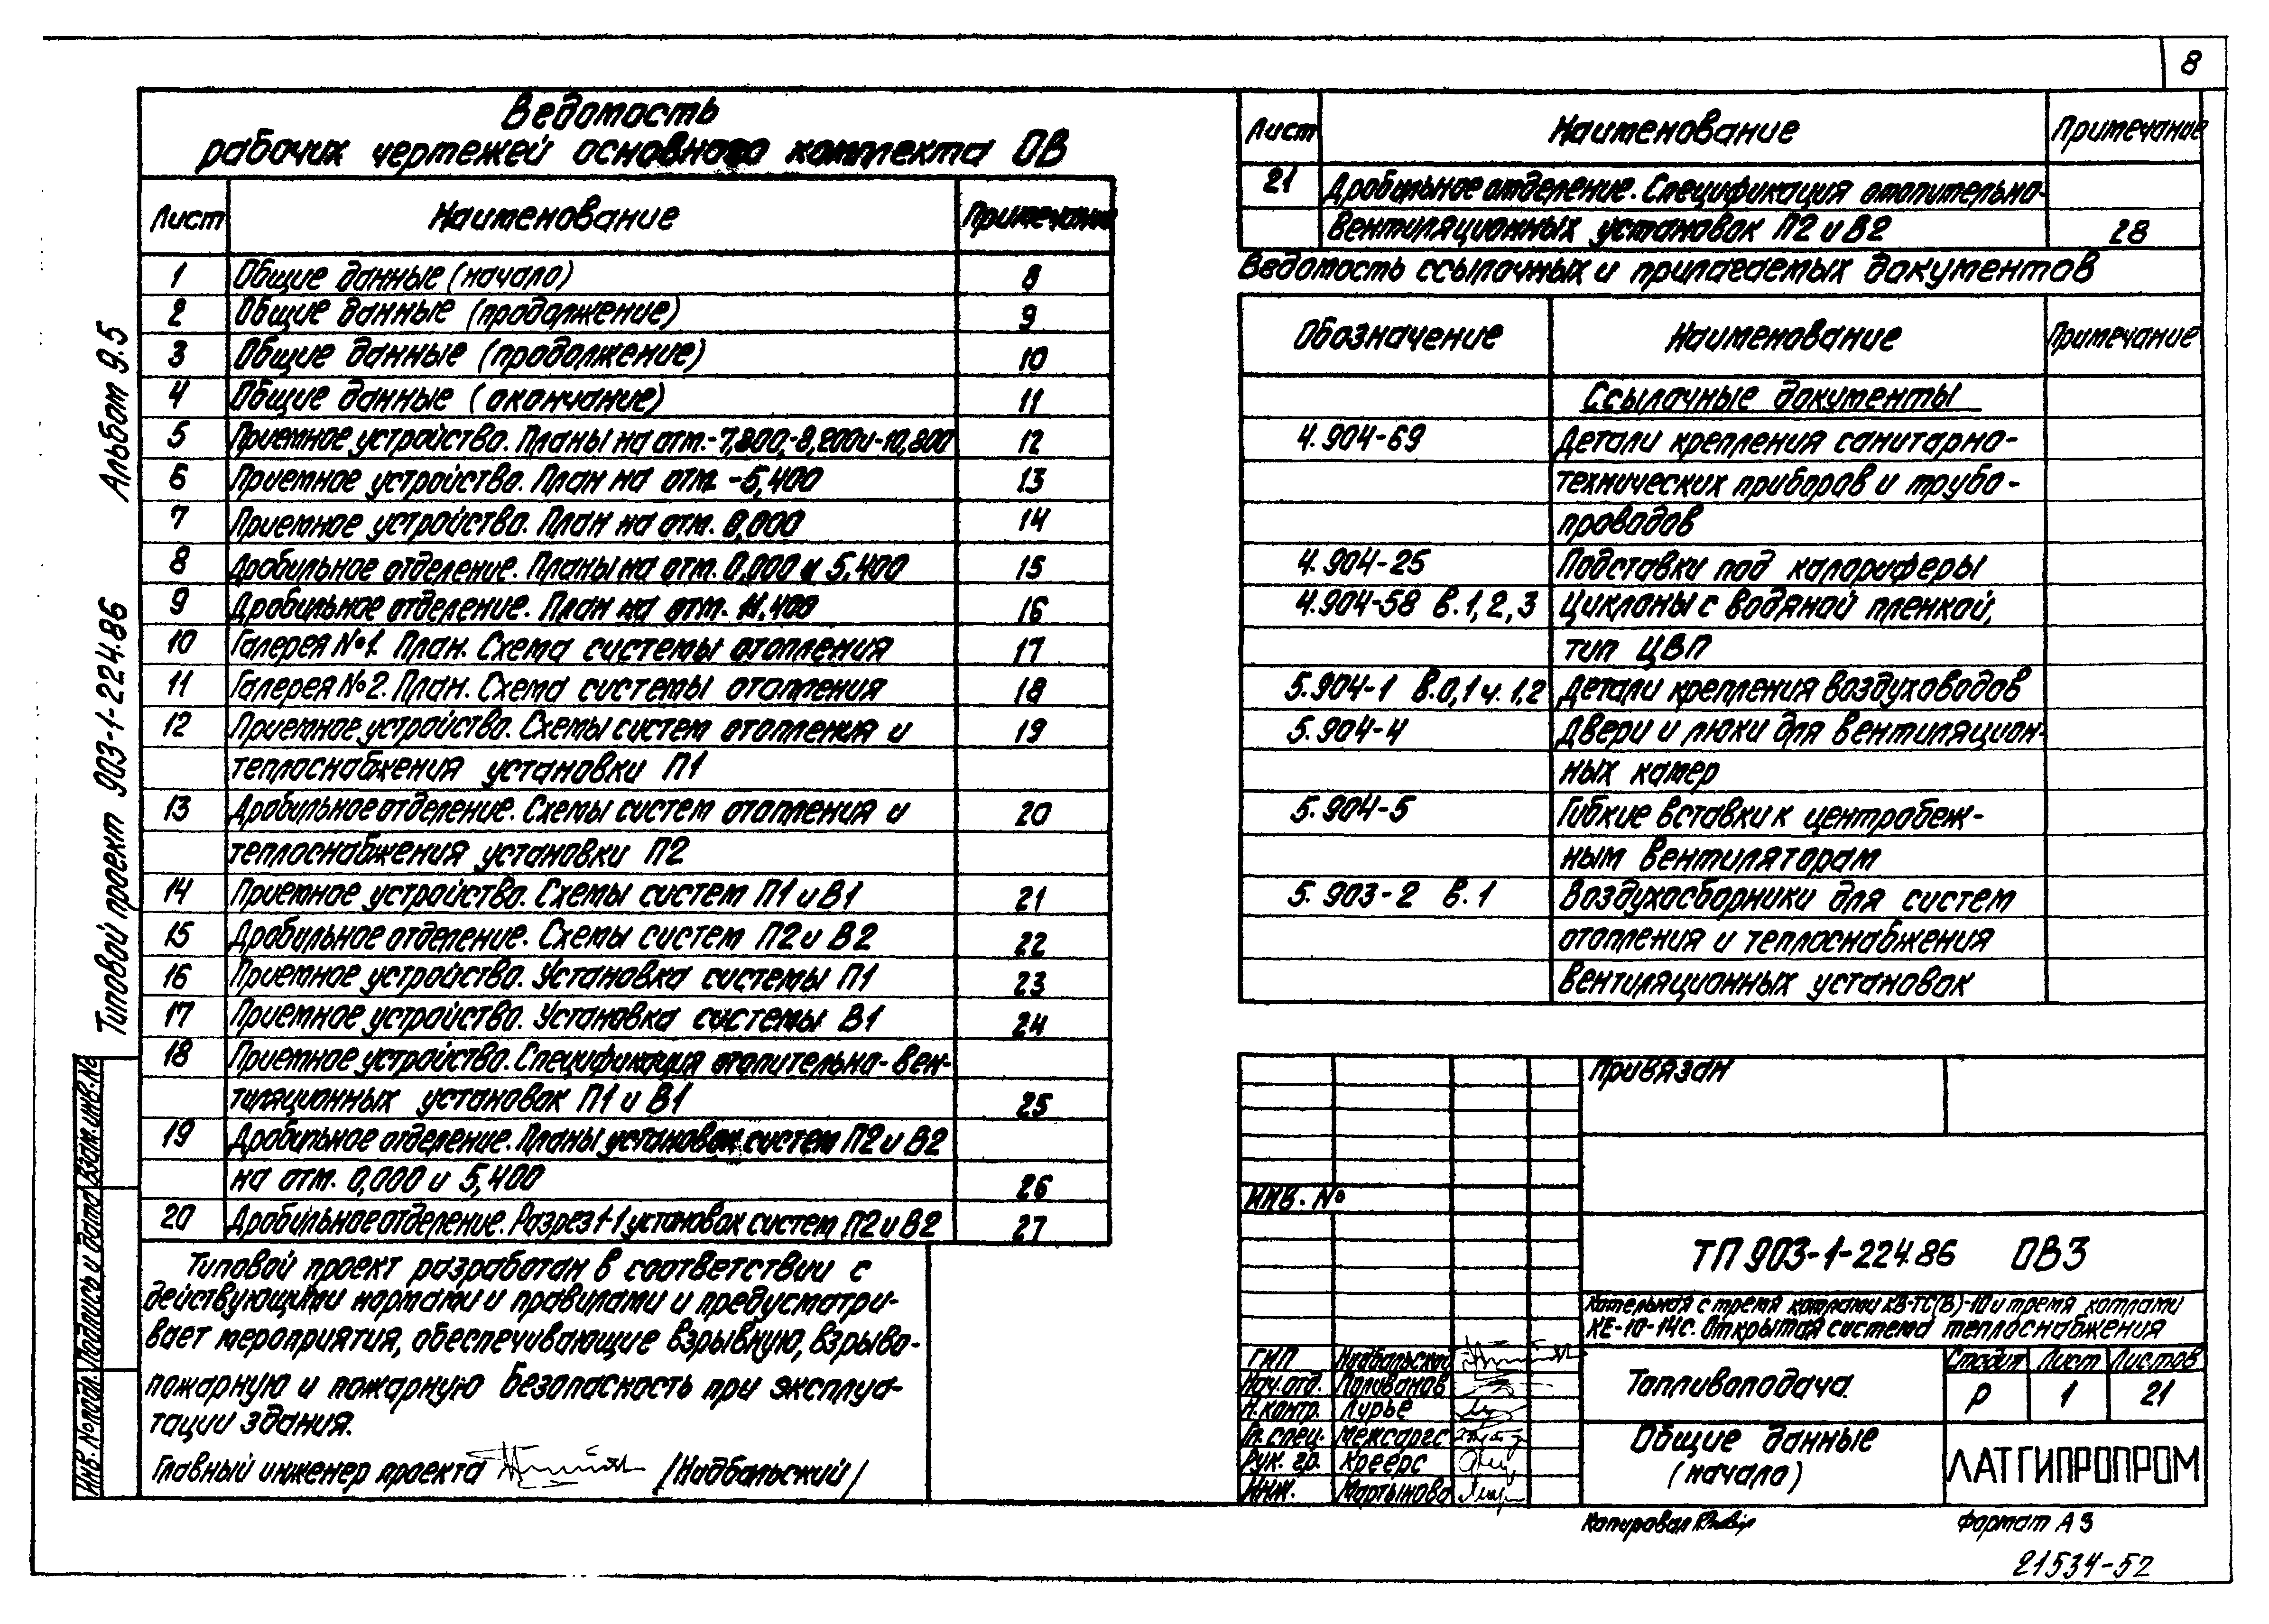 8
Альбом 9.5
Типовой проект 903-1-224.86
Взам.инв.№
Подпись и дата
Инв. № подл.
Ведомость
рабочих чертежей основного комплекта ОВ
Лист Наименование Примечание
1 Общие данные (начало) 8
2 Общие данные (продолжение) 9
3 Общие данные (продолжение) 10
4 Общие данные (окончание) 11
5 Приемное устройство. Планы на отм.-7,800,-8,200и-10,800 12
6 Приемное устройство. План на отм. -5,400 13
7 Приемное устройство. План на отм. 0,000 14
8 Дробильное отделение. Планы на отм. 0,000 и 5,400 15
9 Дробильное отделение. План на отм. 11,400 16
10 Галерея №1. План. Схема системы отопления 17
11 Галерея №2. План. Схема системы отопления 18
12 Приемное устройство. Схемы систем отопления и 19
теплоснабжения установки П1
13 Дробильное отделение. Схемы систем отопления и 20
теплоснабжения установки П2
14 Приемное устройство. Схемы систем П1 и В1 21
15 Дробильное отделение. Схемы систем П2 и В2 22
16 Приемное устройство. Установка системы П1 23
17 Приемное устройство. Установка системы В1 24
18 Приемное устройство. Спецификация отопительно-вен-
тиляционных установок П1 и В1 25
19 Дробильное отделение. Планы установок систем П2 и В2
на отм. 0,000 и 5,400 26
20 Дробильное отделение. Разрез 1-1 установок систем П2 и В2 27
Типовой проект разработан в соответствии с
действующими нормами и правилами и предусматри-
вает мероприятия, обеспечивающие взрывную, взрыво-
пожарную и пожарную безопасность при эксплуа-
тации здания.
Главный инженер проекта /Надбальский/
Лист Наименование Примечание
21 Дробильное отделение. Спецификация отопительно-
вентиляционных установок П2 и В2 28
Ведомость ссылочных и прилагаемых документов
Обозначение Наименование Примечание
Ссылочные документы
4.904-69 Детали крепления санитарно-
технических приборов и трубо-
проводов
4.904-25 Подставки под калориферы
4.904-58 в.1,2,3 Циклоны с водяной пленкой,
тип ЦВП
5.904-1 в.0,1 ч.1,2 Детали крепления воздуховодов
5.904-4 Двери и люки для вентиляцион-
ных камер
5.904-5 Гибкие вставки к центробеж-
ным вентиляторам
5.903-2 в.1 Воздухосборники для систем
отопления и теплоснабжения
вентиляционных установок
Привязан
Инв. №
ТП 903-1-224.86 ОВ3
Котельная с тремя котлами КВ-ТС(В)-10 и тремя котлами
КЕ-10-14с. Открытая система теплоснабжения
ГИП Надбальский
Нач.отд. Полованов
Н.контр. Лурье
Гл.спец. Межсаргс
Рук. гр. Креерс
Инж. Мартынова
Топливоподача
Стадия Лист Листов
Р 1 21
Общие данные
(начало)
ЛАТГИПРОПРОМ
Копировал
Формат А3
21534-52